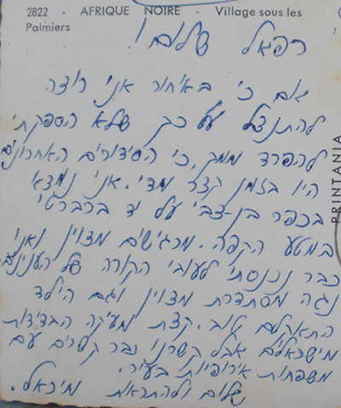 2822 - AFRIQUE NOIRE - Village sous les
Palmiers
רפאל שלום!
גם כי באיחור אני רוצה
להתנצל על כך שלא הספקתי
להפרד ממך, כי הסידורים האחרונים
היו בזמן קצר מדי. אני נמצא
בכפר בן-צבי על יד
במטע הקפה. מרגישים מצוין ואני
כבר נכנסתי לעובי הקורה של הענינים
נגה מסתדרת מצוין וגם הילד
התאקלם טוב. קצת מעיקה הבדידות
מישראלים אבל קשרנו כבר קשרים עם
משפחות אירופיות בעיר.
שלום ולהתראות
PRINTANIA